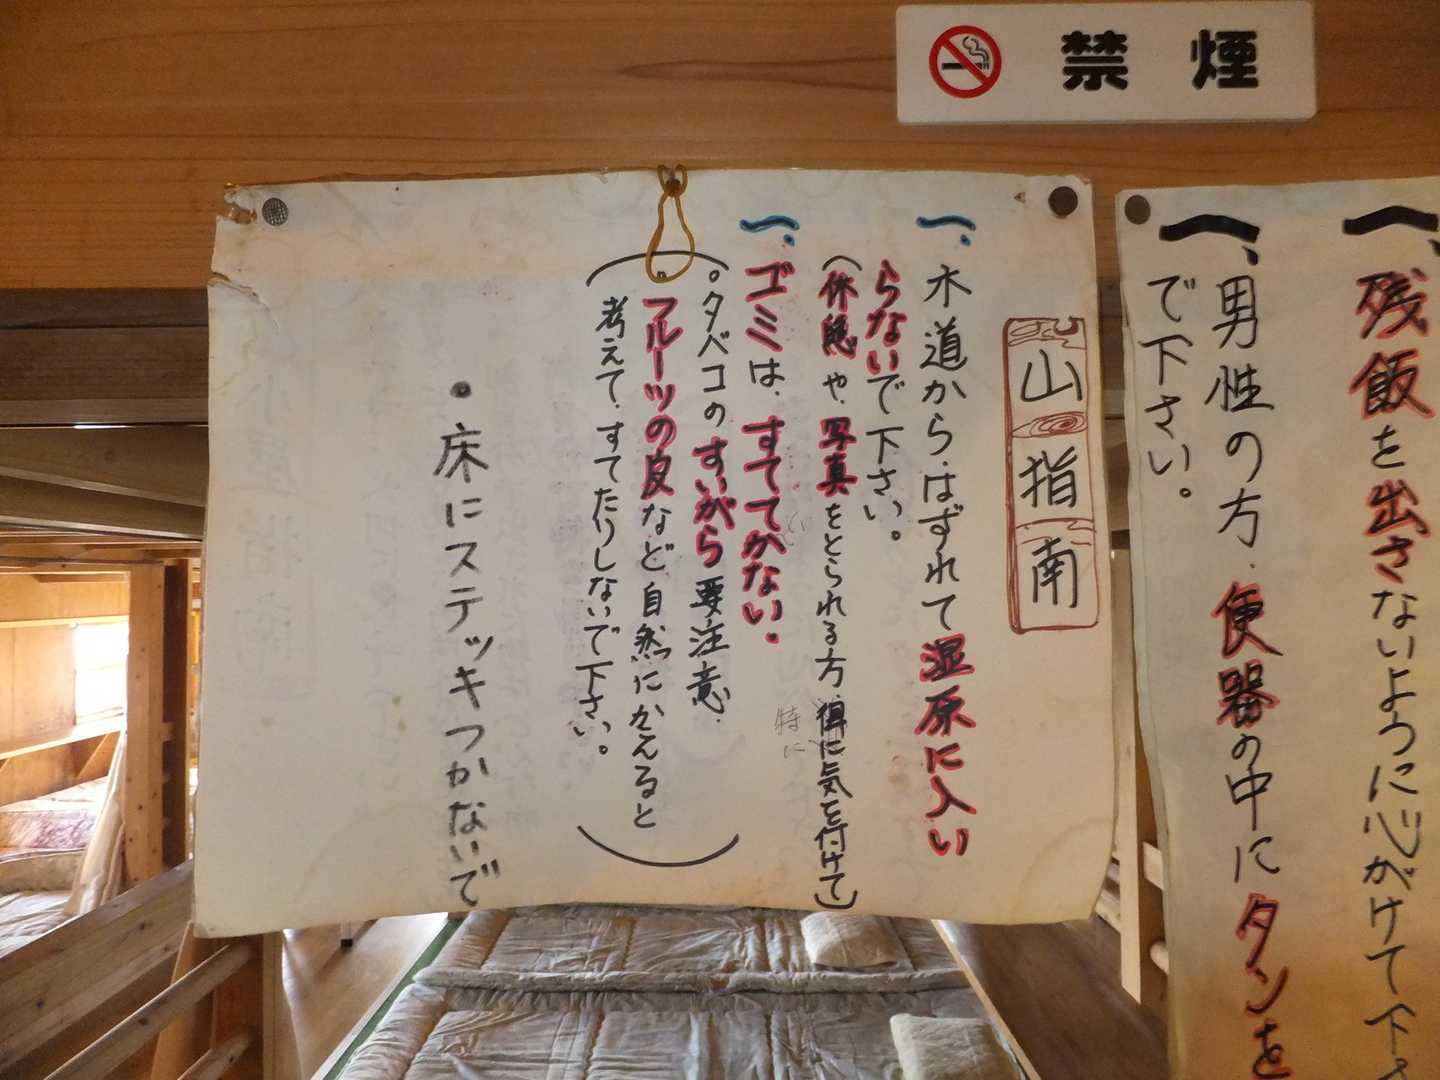 禁煙
一、残飯を出さないように心がけて下さ
一、男性の方、便器の中にタンを
で下さい。
山指南
一、木道から、はずれて湿原に入い
らないで下さい。
(休憩や、写真をとられる方、得に気を付けて)
特に
一、ゴミは、すててかない。
。タバコのすいがら要注意、
。フルーツの皮など自然にかえると
考えて、すてたりしないで下さい。
・床にステッキつかないで